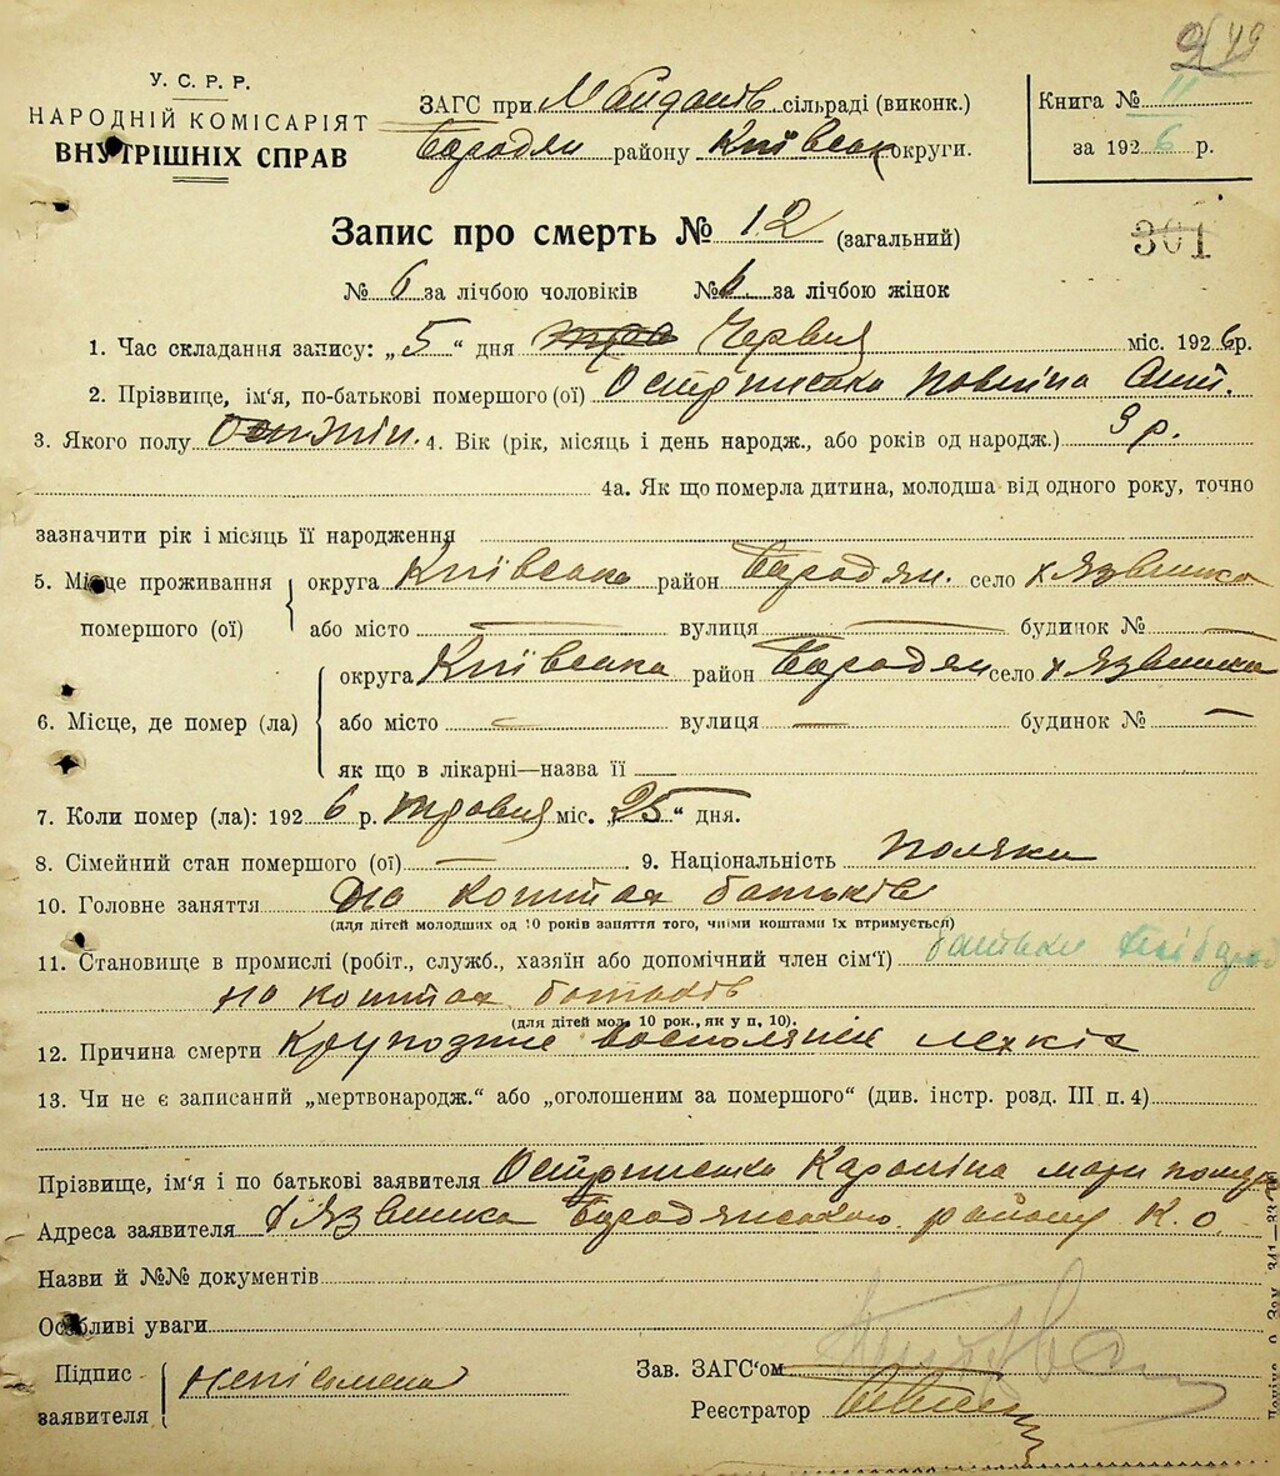 49
У. С. Р. Р.
НАРОДНІЙ КОМІСАРІЯТ
ВНУТРІШНІХ СПРАВ
ЗАГС при Майданів сільраді (виконк.)
Бородян району Київськ округи.
Книга № 11
за 1926 р.
Запис про смерть № 12 (загальний)
301
№ 6 за лічбою чоловіків № 6 за лічбою жінок
1. Час складання запису: „5“ дня Червня міс. 1926 р.
2. Прізвище, ім'я, по-батькові помершого (ої) Остриська Повліна Ант.
3. Якого полу жін. 4. Вік (рік, місяць і день народж., або років од народж.) 9 р.
4а. Як що померла дитина, молодша від одного року, точно
зазначити рік і місяць її народження
5. Місце проживання помершого (ої) округа Київська район Бородян. село х Язвинка
або місто — вулиця — будинок № —
6. Місце, де помер (ла) округа Київська район Бородян село х Язвинка
або місто — вулиця — будинок № —
як що в лікарні—назва її —
7. Коли помер (ла): 1926 р. травня міс. „25“ дня.
8. Сімейний стан помершого (ої) — 9. Національність поляки
10. Головне заняття На коштах батьків
(для дітей молодших од 10 років заняття того, чиїми коштами їх втримується)
11. Становище в промислі (робіт., служб., хазяїн або допомічний член сім'ї) батьки
на коштах батьків
(для дітей мол. 10 рок., як у п. 10).
12. Причина смерти Крупозне воспаління легкіх
13. Чи не є записаний „мертвонародж.“ або „оголошеним за помершого“ (див. інстр. розд. III п. 4)
Прізвище, ім'я і по батькові заявителя Остриська Кароліна мати
Адреса заявителя х Язвинка Бородянського району К. О.
Назви й №№ документів
Особливі уваги
Підпис заявителя неписьмена
Зав. ЗАГС'ом
Реєстратор